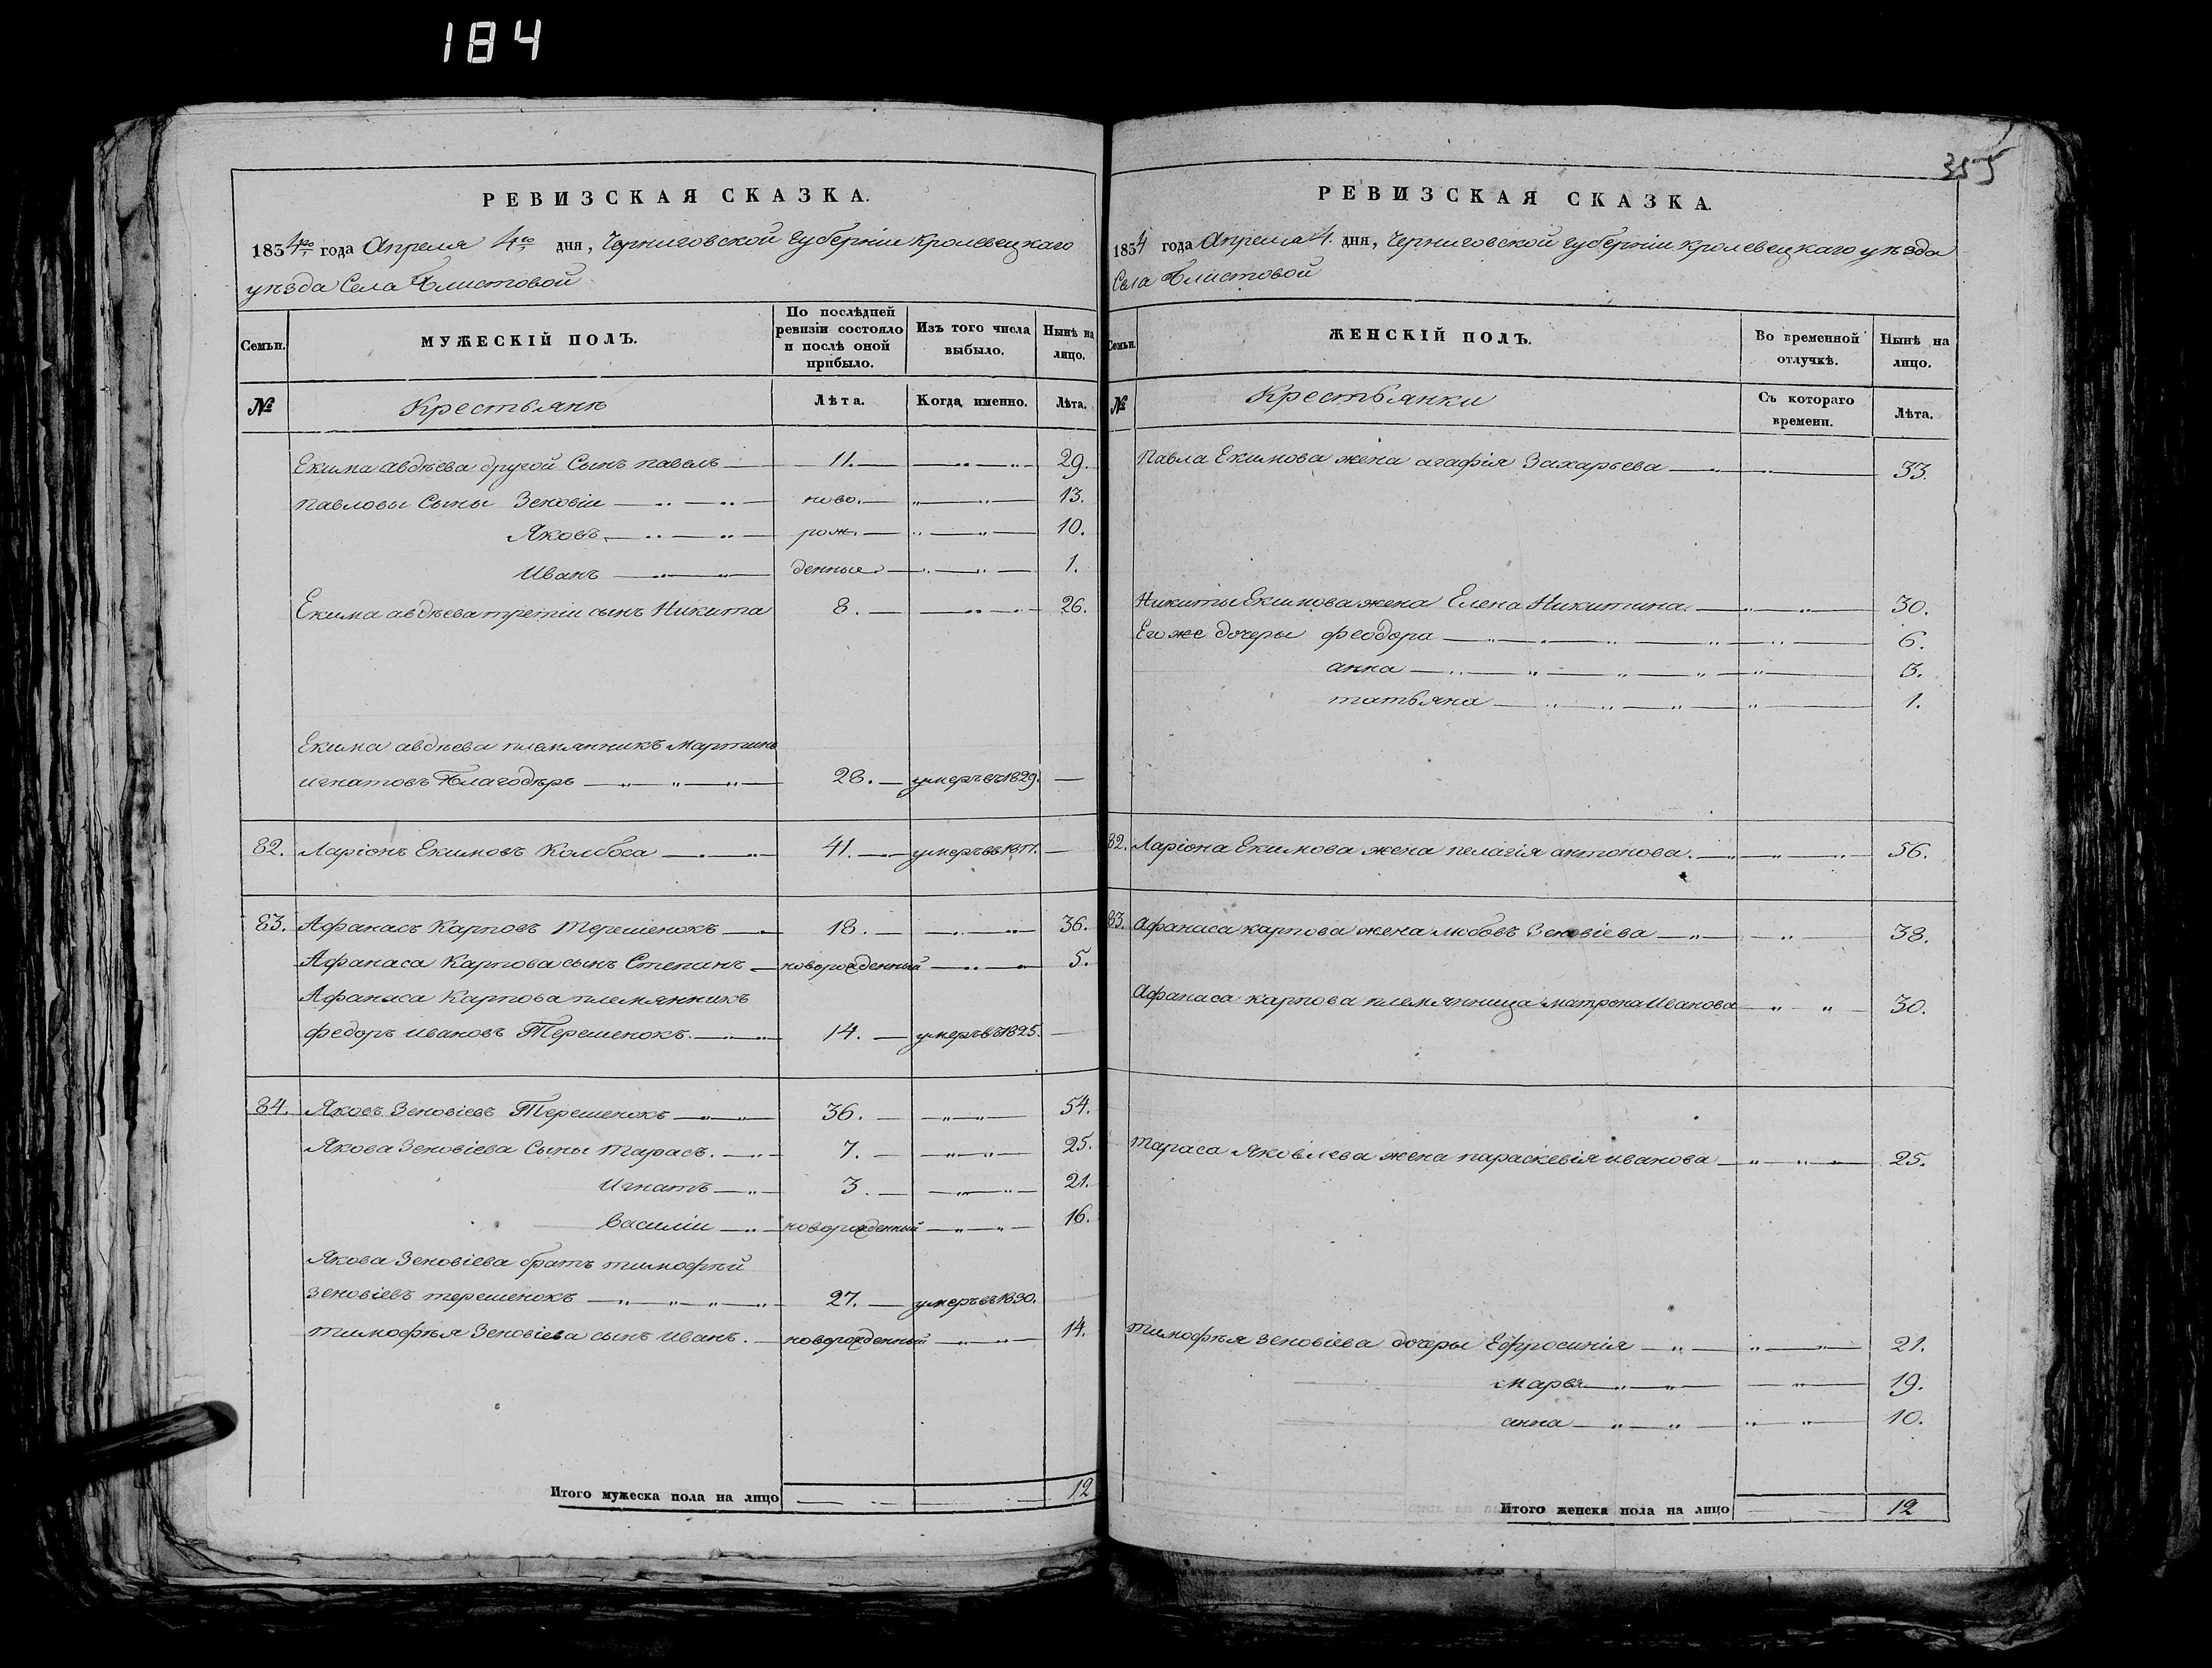 184
РЕВИЗСКАЯ СКАЗКА.
1834го года Апреля 4го дня, Черниговской губерніи Кролевецкаго
уѣзда Села Блистовой
Семьи.
МУЖЕСКІЙ ПОЛЪ.
По послѣдней ревизіи состояло и послѣ оной прибыло.
Изъ того числа выбыло.
Нынѣ на лицо.
№
Крестьянѣ
Лѣта.
Когда именно.
Лѣта.
Екима авдѣева другой Сынъ павелъ 11. 29.
павловы Сыны Зеновіи ново. 13.
Яковъ рож. 10.
Иванъ денные. 1.
Екима авдѣева третіи сынъ Никита 8. 26.
Екима авдѣева племянникъ мартинъ
игнатовъ Благодѣрь 28. умеръ въ 1829.
82. Ларіонъ Екимовъ Колбоса 41. умеръ въ
83. Афанасъ Карповъ Терешенокъ 18. 36.
Афанаса Карпова сынъ Степанъ новорожденный 5.
Афанаса Карпова племянникъ
федоръ ивановъ Терешенокъ. 14. умеръ въ 1825.
84. Яковъ Зеновіевъ Терешенокъ 36. 54.
Якова Зеновіева Сыны тарасъ. 7. 25.
Игнатъ 3. 21.
Василіи новорожденный 16.
Якова Зеновіева братъ тимофѣй
зеновіевъ терешенокъ 27. умеръ въ 1830.
тимофѣя Зеновіева сынъ иванъ. новорожденный 14.
Итого мужеска пола на лицо 12
355
РЕВИЗСКАЯ СКАЗКА.
1834 года Апреля 4. дня, Черниговской губерніи Кролевецкаго уѣзда
Села Блистовой
Семьи.
ЖЕНСКІЙ ПОЛЪ.
Во временной отлучкѣ.
Нынѣ на лицо.
№
Крестьянки
Съ котораго времени.
Лѣта.
Павла Екимова жена агафія Захарьева 33.
Никиты Екимова жена Елена Никитина. 30.
Его же дочеры феодора 6.
анна 3.
татьяна 1.
82. Ларіона Екимова жена пелагія антонова. 56.
83. Афанаса карпова жена любовъ Зеновіева 38.
Афанаса карпова племянница матрона Иванова 30.
Тараса Яковлева жена параскевія иванова 25.
Тимофѣя зеновіева дочеры Ефросинія 21.
марья 19.
анна 10.
Итого женска пола на лицо 12